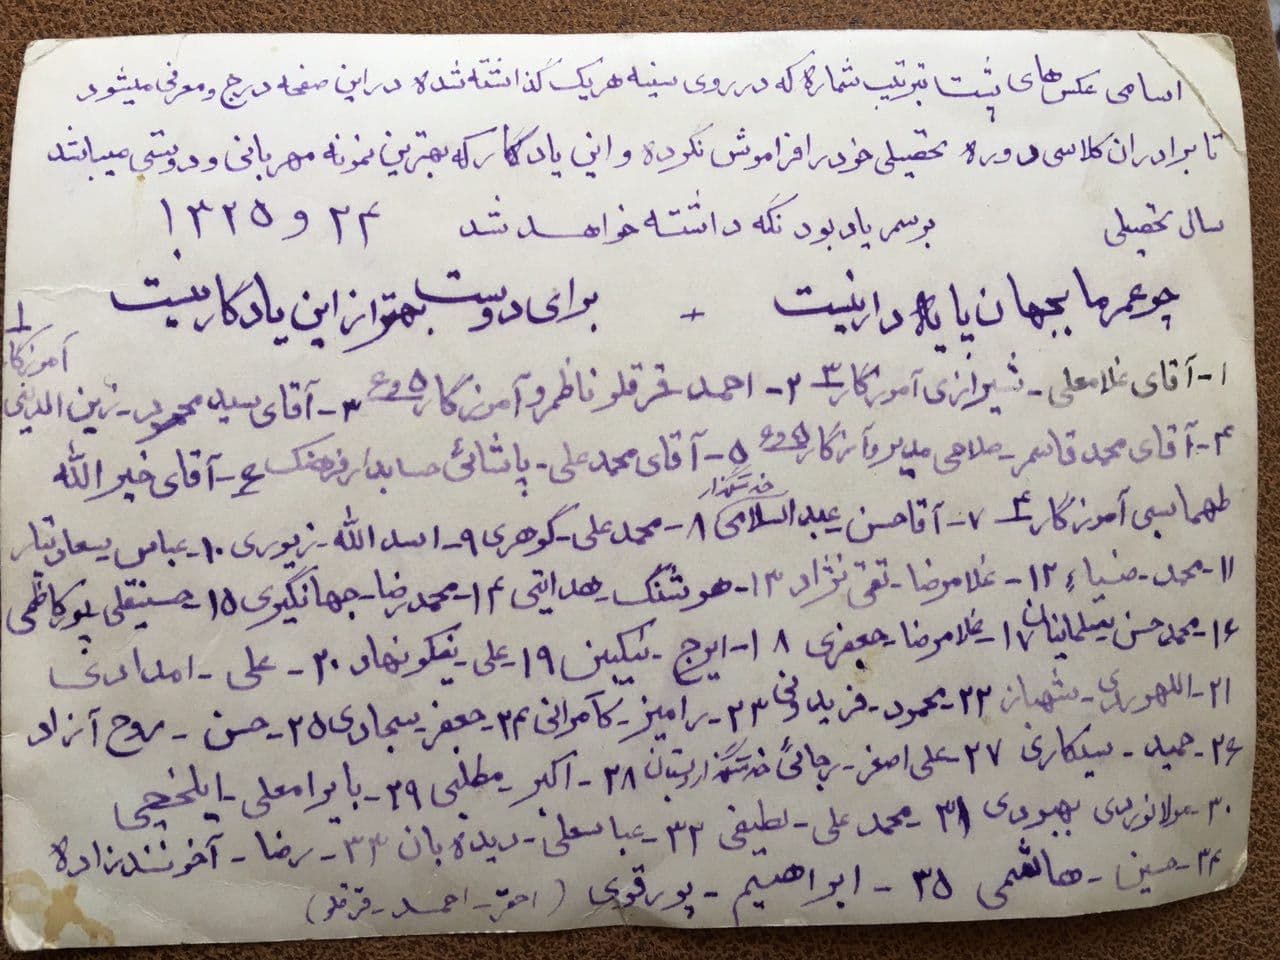 اسامی عکس‌های پشت بترتیب شماره که در روی سینه هریک گذاشته شده در این صفحه درج و معرفی میشود
تا برادران کلاسی دوره تحصیلی خود را فراموش نکرده و این یادگار که بهترین نمونه مهربانی و دوستی میباشد
برسم یادبود نگه داشته خواهد شد سال تحصیلی ۲۴ و ۱۳۲۵
چو عمر ما بجهان پایه دار نیست + برای دوست بهتر از این یادگار نیست
۱- آقای غلامعلی - شیرازی آموزگار ۳ ۲- احمد قرقلو ناظم و آموزگار ۵ و ۶ ۳- آقای سید محمود - زین الدینی آموزگار ۱
۴- آقای محمد قاسم - صلاحی مدیر و آموزگار ۵ و ۶ ۵- آقای محمد علی - پاشائی حسابدار فرهنگ ۶- آقای خیر الله
طهماسبی آموزگار ۴ ۷- آقا حسن عبدالسلامی خدمتگذار ۸- محمد علی - گوهری ۹- اسد الله - زیوری ۱۰- عباس سعادتیار
۱۱- محمد - ضیاء ۱۲- غلامرضا - تقی نژاد ۱۳- هوشنگ - هدایتی ۱۴- محمد رضا - جهانگیری ۱۵- حسینقلی پور کاظمی
۱۶- محمد حسن سلمانیان ۱۷- غلامرضا - جعفری ۱۸- ایرج - نیکبین ۱۹- علی - نیکونهاد ۲۰- علی - امدادی
۲۱- اللهوردی - شهباز ۲۲- محمود - فریدونی ۲۳- رامیز - کامرانی ۲۴- جعفر - سجادی ۲۵- حسن - روح آزاد
۲۶- حمید - سیکاری ۲۷- علی اصغر - رجائی خدمتگزار دبستان ۲۸- اکبر - مطلبی ۲۹- بایرامعلی - ایلخچی
۳۰- مولانوردی بهبودی ۳۱- محمد علی - لطیفی ۳۲- عباسعلی - دیده بان ۳۳- رضا - آخوندزاده
۳۴- حسین - هاشمی ۳۵- ابراهیم - پورقوی (احقر - احمد - قرقلو)